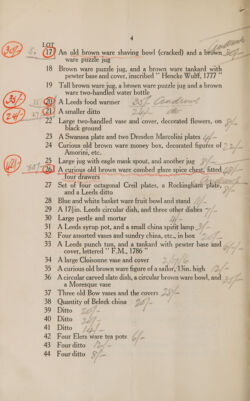 4
LOT
17 An old brown ware shaving bowl (cracked) and a brown
ware puzzle jug
18 Brown ware puzzle jug, and a brown ware tankard with
pewter base and cover, inscribed " Hencke Wulff, 1777 "
19 Tall brown ware jug, a brown ware puzzle jug and a brown
ware two-handled water bottle
20 A Leeds food warmer 35/-
21 A smaller ditto 24/-
22 Large two-handled vase and cover, decorated flowers, on
black ground
23 A Swansea plate and two Dresden Marcolini plates 4/-
24 Curious old brown ware money box, decorated figures of
Amorini, etc.
25 Large jug with eagle mask spout, and another jug
26 A curious old brown ware combed glaze spice chest, fitted
four drawers
27 Set of four octagonal Creil plates, a Rockingham plate,
and a Leeds ditto
28 Blue and white basket ware fruit bowl and stand
29 A 17½in. Leeds circular dish, and three other dishes
30 Large pestle and mortar 4/-
31 A Leeds syrup pot, and a small china spirit lamp
32 Four assorted vases and sundry china, etc., in box
33 A Leeds punch tun, and a tankard with pewter base and
cover, lettered " F.M., 1786 "
34 A large Cloisonne vase and cover
35 A curious old brown ware figure of a sailor, 13in. high
36 A circular carved slate dish, a circular brown ware bowl, and
a Moresque vase
37 Three old Bow vases and the covers 28/-
38 Quantity of Beleek china 20/-
39 Ditto 20/-
40 Ditto
41 Ditto 14/-
42 Four Elers ware tea pots 6/-
43 Four ditto
44 Four ditto 8/-